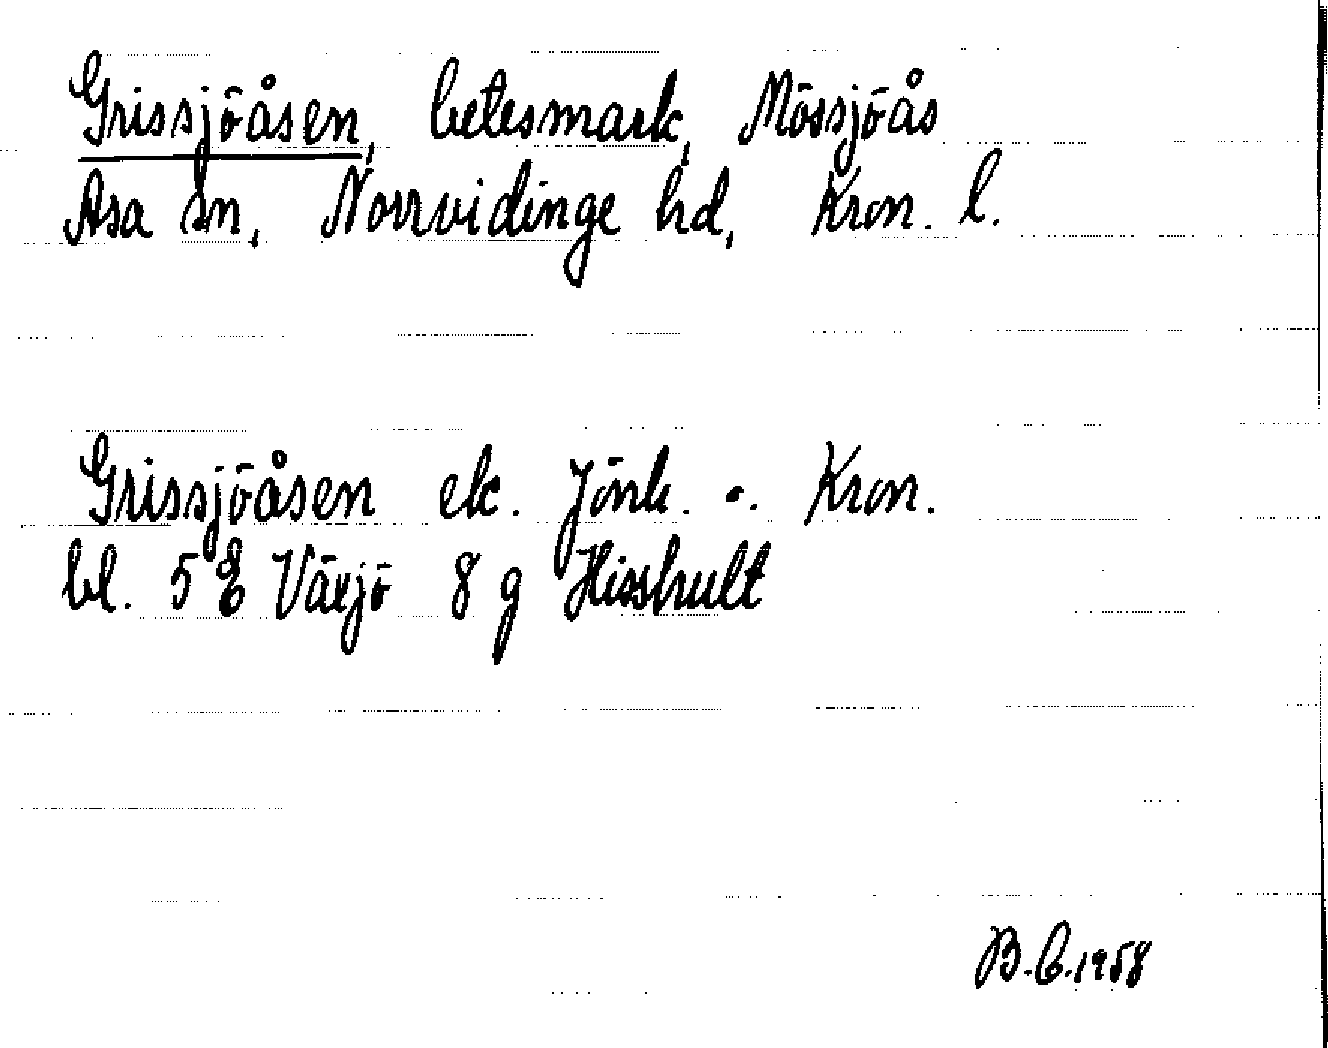 Grissjöåsen, betesmark, Mössjöås
Asa sn, Norrvidinge hd, Kron. l.
Grissjöåsen ek. Jönk. o. Kron.
bl. 5 E Växjö 8 g Hisshult
B.C. 1958